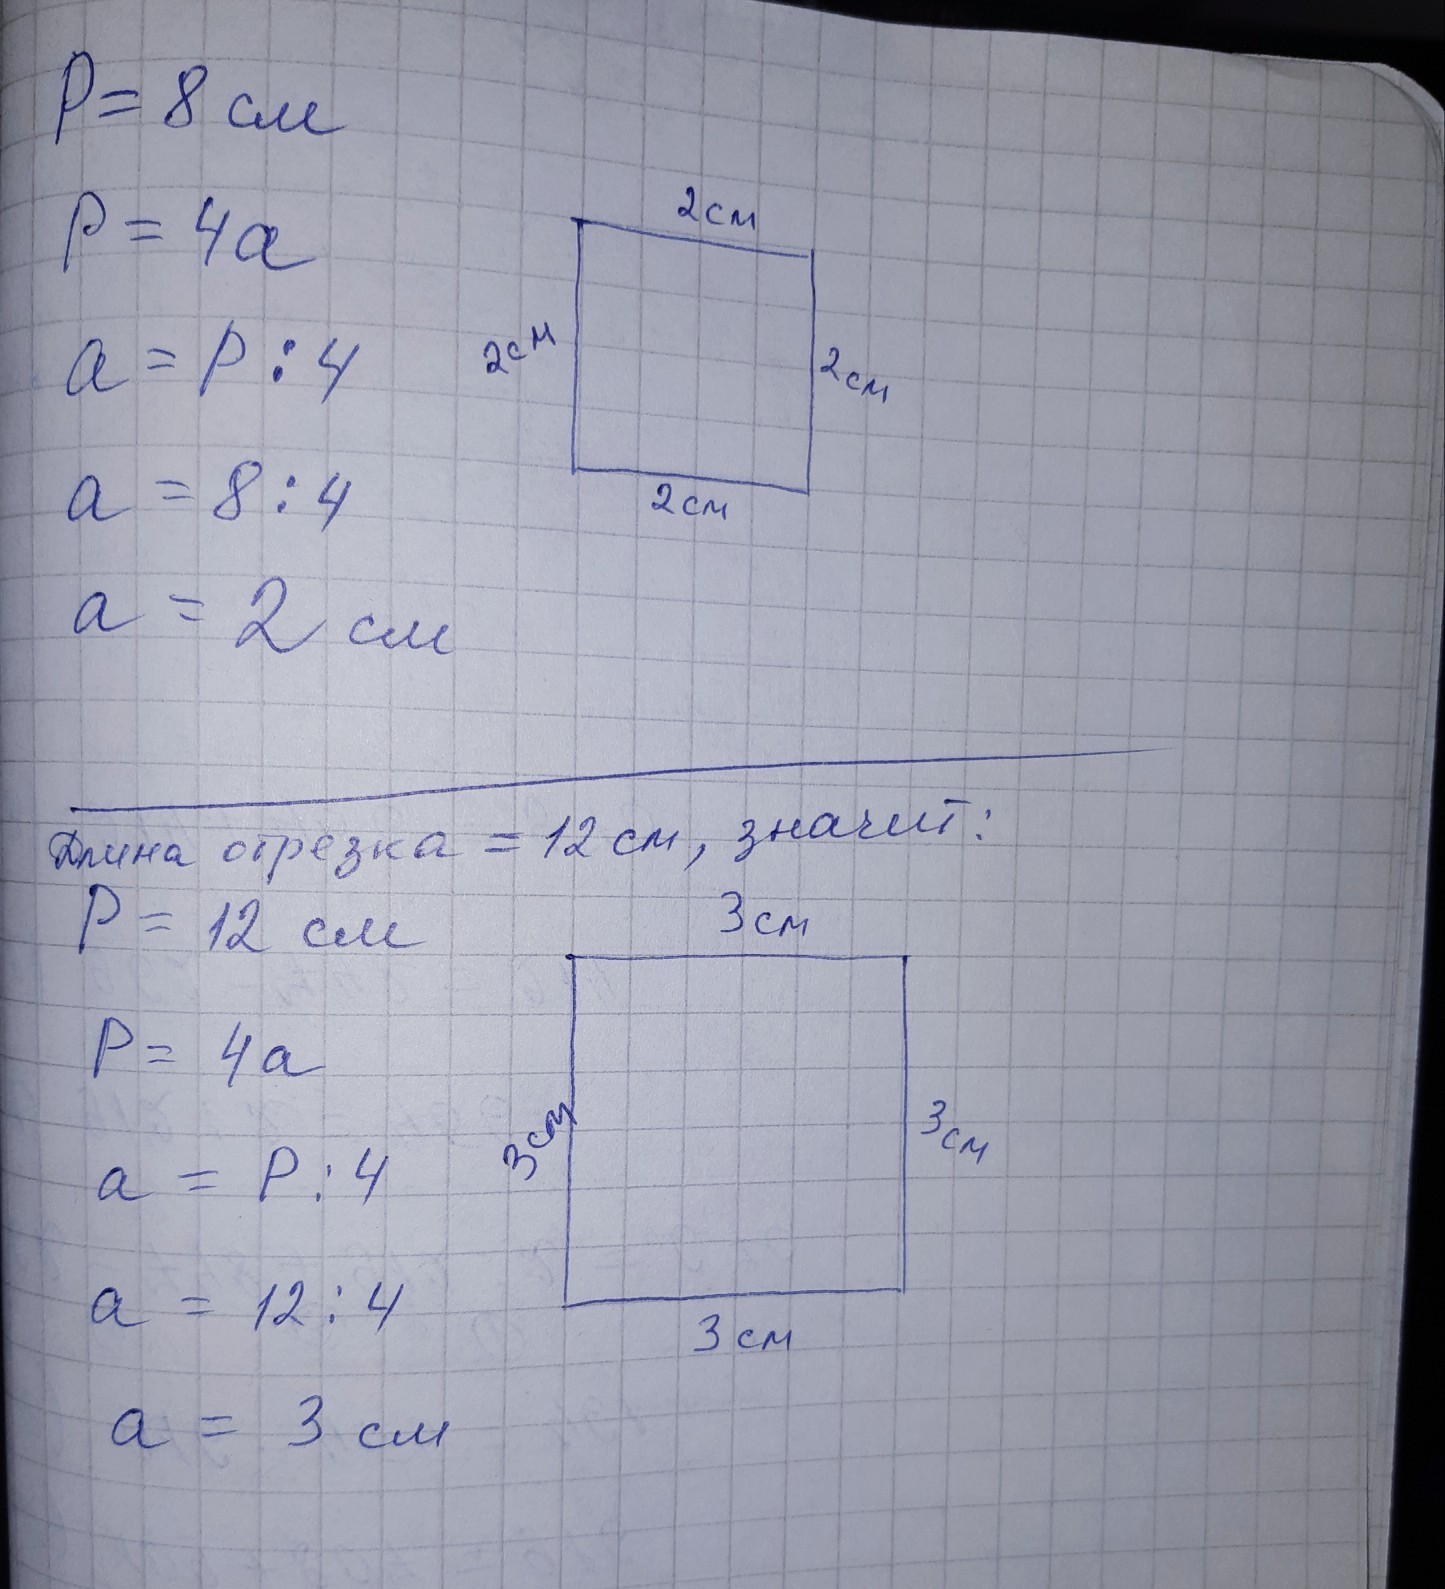 P = 8 см
P = 4a
a = P : 4
a = 8 : 4
a = 2 см
2см
2см
2см
2см
Длина отрезка = 12 см, значит:
P = 12 см
P = 4a
a = P : 4
a = 12 : 4
a = 3 см
3см
3см
3см
3 см